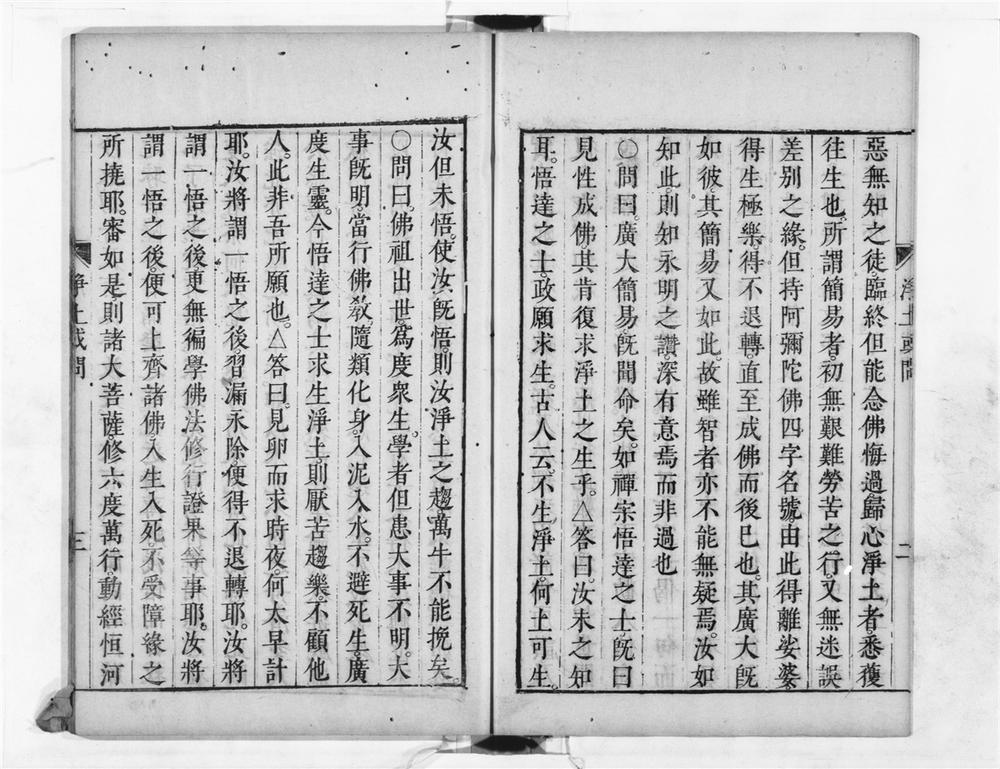 惡無知之徒。臨終但能念佛悔過。歸心淨土者。悉獲
往生也。所謂簡易者。初無艱難勞苦之行。又無迷誤
差别之緣。但持阿彌陀佛四字名號。由此得離娑婆。
得生極樂。得不退轉。直至成佛而後已也。其廣大既
如彼。其簡易又如此。故雖智者亦不能無疑焉。汝如
知此。則知永明之讚。深有意焉而非過也
〇問曰。廣大簡易。既聞命矣。如禪宗悟達之士。既曰
見性成佛。其肯復求淨土之生乎。△答曰。汝未之知
耳。悟達之士。政願求生。古人云。不生淨土。何土可生。
淨土或問
二
汝但未悟。使汝既悟。則汝淨土之趨。萬牛不能挽矣。
〇問曰。佛祖出世。爲度衆生。學者但患大事不明。大
事既明。當行佛教。隨類化身。入泥入水。不避死生。廣
度生靈。今悟達之士求生淨土。則厭苦趨樂。不顧他
人。此非吾所願也。△答曰。見卵而求時夜。何太早計
耶。汝將謂一悟之後。習漏永除。便得不退轉耶。汝將
謂一悟之後。更無徧學佛法修行證果等事耶。汝將
謂一悟之後。便可上齊諸佛。入生入死。不受障緣之
所撓耶。審如是。則諸大菩薩。修六度萬行。動經恒河
淨土或問
三